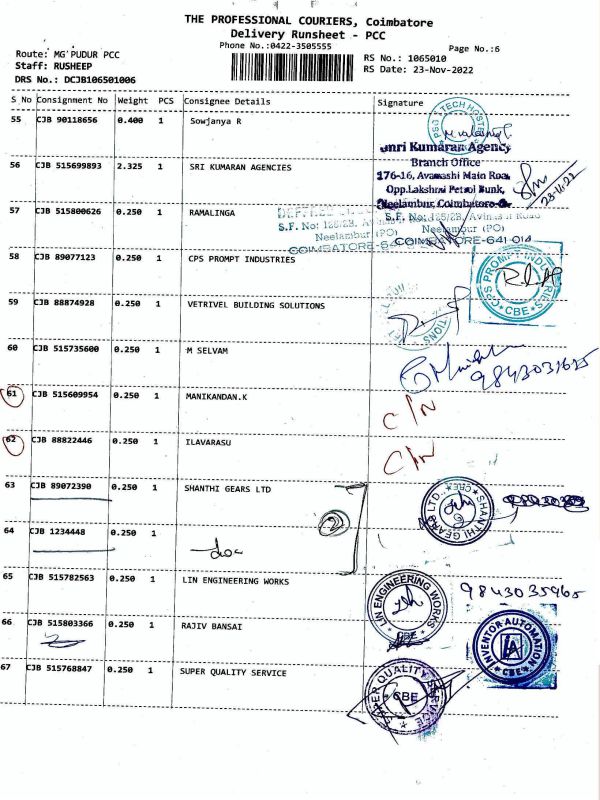 THE PROFESSIONAL COURIERS, Coimbatore
Delivery Runsheet - PCC
Phone No.:0422-3505555
Page No.:6
Route: MG PUDUR PCC
Staff: RUSHEEP
DRS No.: DCJB106501006
RS No.: 1065010
RS Date: 23-Nov-2022
S No Consignment No Weight PCS Consignee Details Signature
55 CJB 90118656 0.400 1 Sowjanya R
PSG TECH HOSTEL
56 CJB 515699893 2.325 1 SRI KUMARAN AGENCIES
Kumaran Agency
Branch Office
176-16, Avanashi Main Road
Opp.Lakshmi Petrol Bunk,
Neelambur, Coimbatore
23-11-22
57 CJB 515800626 0.250 1 RAMALINGA
S.F. No: 125/2B, Avinashi Road
Neelambur (PO)
COIMBATORE-641 014
58 CJB 89077123 0.250 1 CPS PROMPT INDUSTRIES
CPS PROMPT INDUSTRIES
CBE
59 CJB 88874928 0.250 1 VETRIVEL BUILDING SOLUTIONS
60 CJB 515735600 0.250 1 M SELVAM
9843031685
61 CJB 515609954 0.250 1 MANIKANDAN.K
C/N
62 CJB 88822446 0.250 1 ILAVARASU
C/N
63 CJB 89072390 0.250 1 SHANTHI GEARS LTD
SHANTHI GEARS LTD., CBE
2
64 CJB 1234448 0.250 1
doc
65 CJB 515782563 0.250 1 LIN ENGINEERING WORKS
LIN ENGINEERING WORKS
CBE
9843035965
66 CJB 515803366 0.250 1 RAJIV BANSAI
INVENTOR AUTOMATION
CBE
67 CJB 515768847 0.250 1 SUPER QUALITY SERVICE
SUPER QUALITY SERVICE
CBE